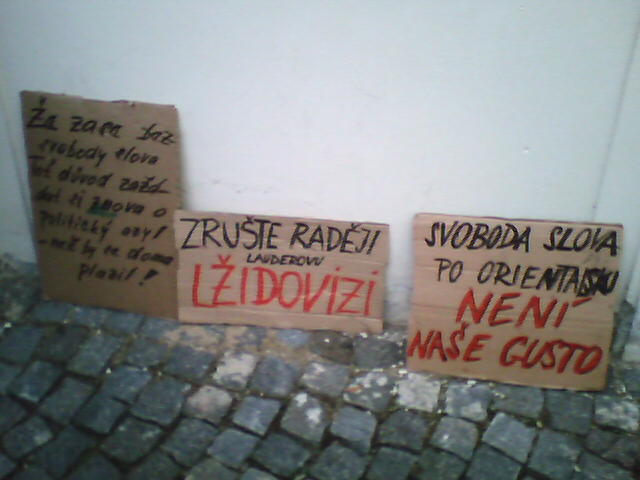 Že zase bez
svobody slova
Toť důvod zažá-
dat si znova o
politický azyl
- než by se doma
plazil!
ZRUŠTE RADĚJI
LAUDEROVU
LŽIDOVIZI
SVOBODA SLOVA
PO ORIENTALSKU
NENÍ
NAŠE GUSTO